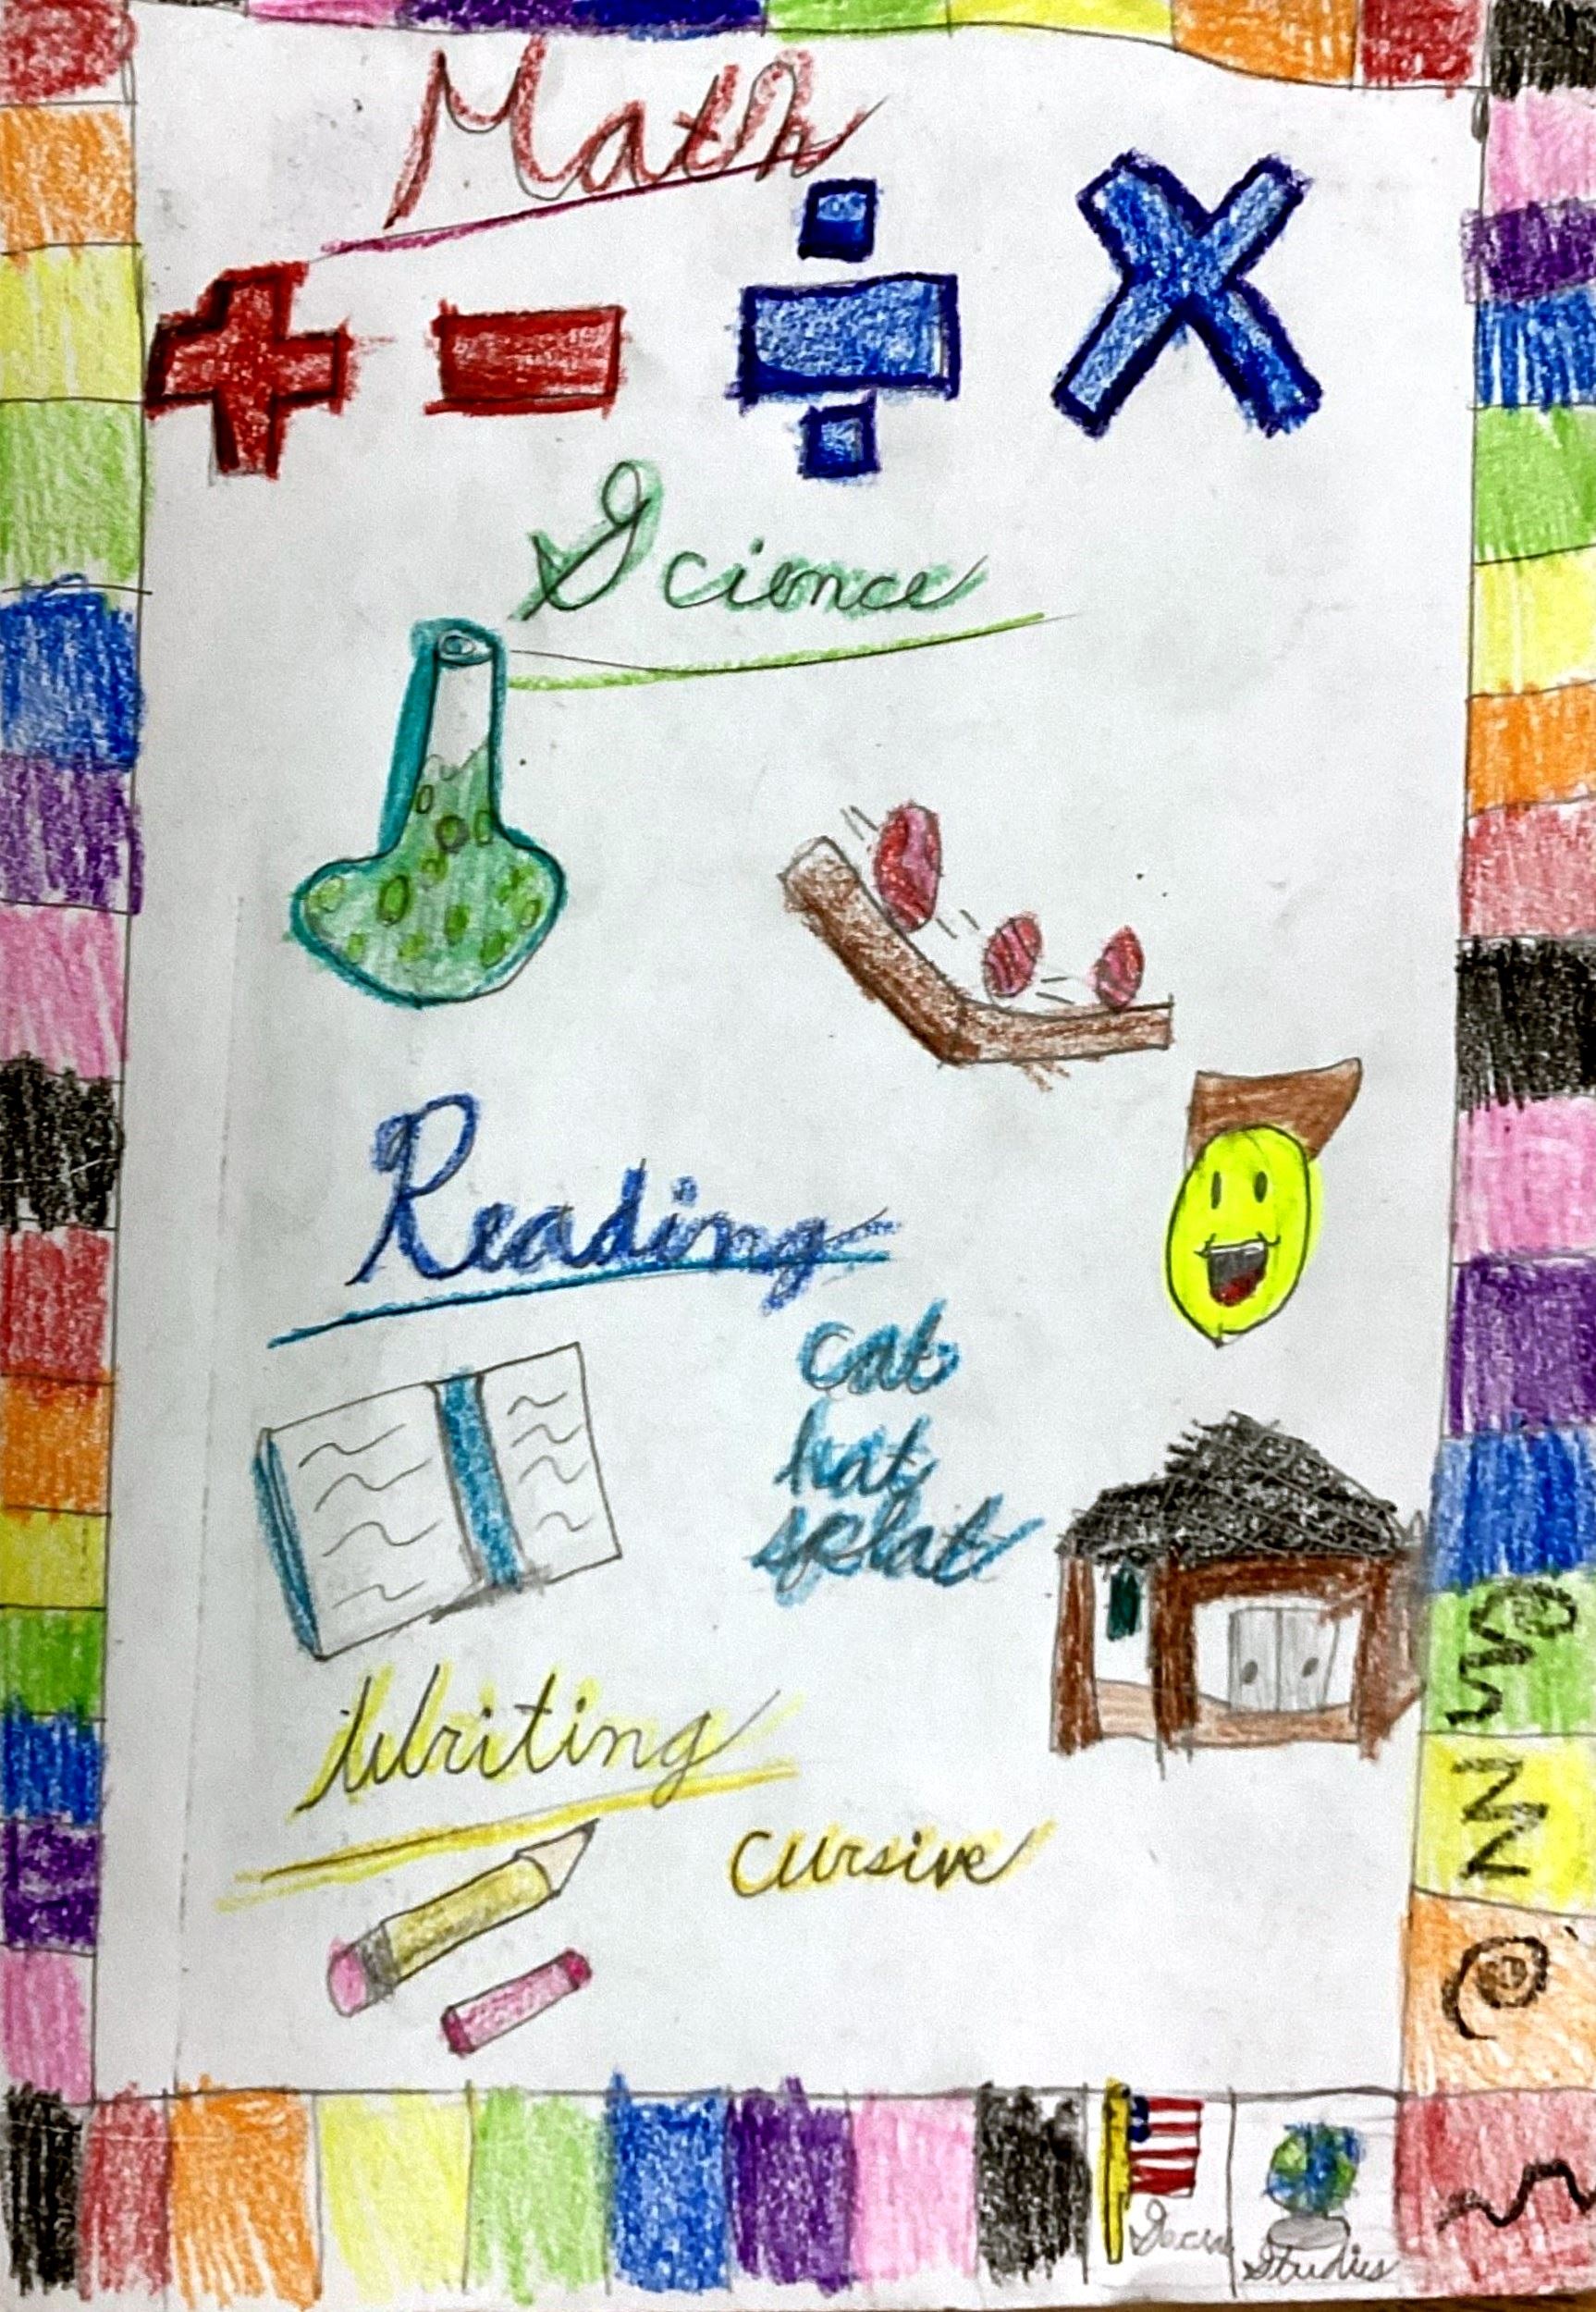 Math
+ - ÷ X
Science
Reading
cat
hat
splat
Writing
cursive
Studies